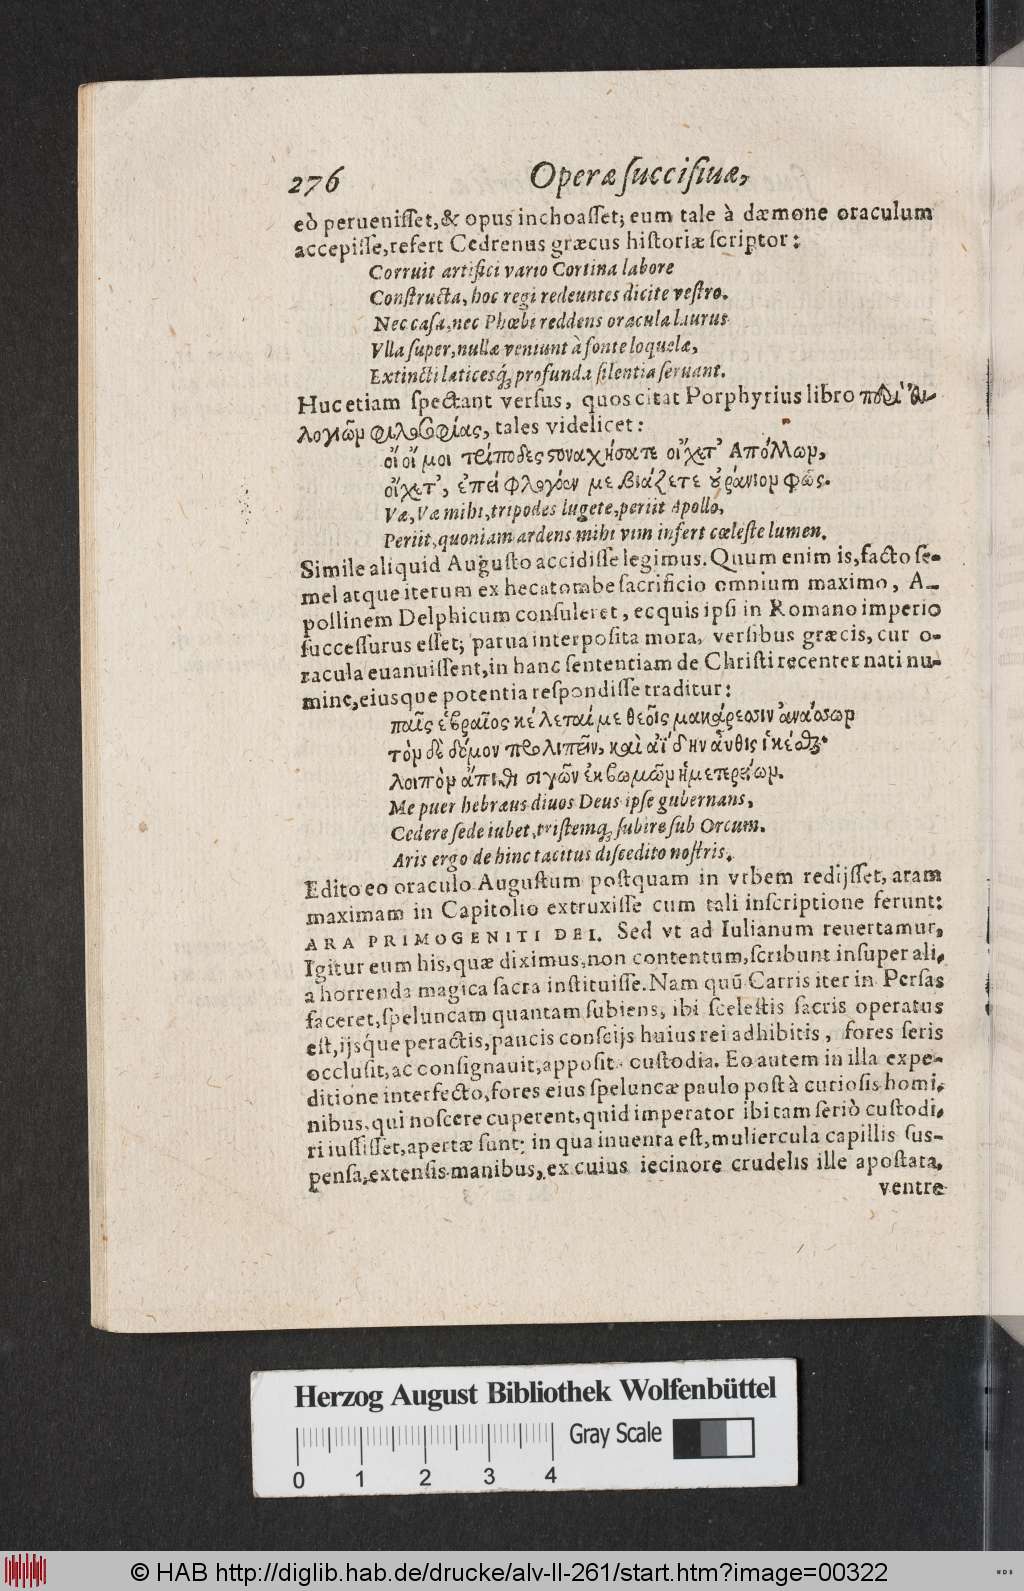 276 Operæ ſucciſiuæ,
eò perueniſſet,& opus inchoaſſet; eum tale à dæmone oraculum
accepiſſe,refert Cedrenus græcus hiſtoriæ ſcriptor:
Corruit artifici vario Cortina labore
Conſtructa, hoc regi redeuntes dicite veſtro.
Nec caſa,nec Phœbi reddens oracula laurus
Vlla ſuper,nullæ veniunt à fonte loquelæ,
Extincti laticesq́; profunda ſilentia ſeruant.
Huc etiam ſpectant verſus, quos citat Porphyrius libro
tales videlicet:
οἴ οἴ μοι τρίποδες στοναχήσατε οἴχετ᾽ Απόλλωμ,
οἴχετ᾽, ἐπεὶ φλογόεν με βιάζετε οὐράνιομ φῶς.
Væ,Væ mihi,tripodes lugete,periit Apollo,
Periit,quoniam ardens mihi vim infert cœleſte lumen.
Simile aliquid Auguſto accidiſſe legimus. Quum enim is,facto ſe-
mel atque iterum ex hecatombe ſacrificio omnium maximo, A-
pollinem Delphicum conſuleret, ecquis ipſi in Romano imperio
ſucceſſurus eſſet; parua interpoſita mora, verſibus græcis, cur o-
racula euanuiſſent,in hanc ſententiam de Chriſti recenter nati nu-
mine,eiusque potentia reſpondiſſe traditur:
παῖς ἑβραῖος κέλεταί με θεοῖς μακάρεσσιν ἀνάσσωμ
τὸμ δὲ δόμον προλιπεῖν, καὶ ἀΐδην αὖθις ἱκέσθαι·
λοιπὸμ ἄπιθι σιγῶν ἐκ βωμῶμ ἡμετερείωμ.
Me puer hebræus diuos Deus ipſe gubernans,
Cedere ſede iubet,triſtemq́; ſubire ſub Orcum.
Aris ergo de hinc tacitus diſcedito noſtris.
Edito eo oraculo Auguſtum poſtquam in vrbem redijſſet, aram
maximam in Capitolio extruxiſſe cum tali inſcriptione ferunt:
ARA PRIMOGENITI DEI. Sed vt ad Iulianum reuertamur,
Igitur eum his,quæ diximus,non contentum,ſcribunt inſuper ali,
a horrenda magica ſacra inſtituiſſe. Nam quū Carris iter in Perſas
faceret,ſpeluncam quantam ſubiens, ibi ſceleſtis ſacris operatus
eſt,ijsq́ue peractis,paucis conſcijs huius rei adhibitis, fores ſeris
occluſit,ac conſignauit,appoſit custodia. Eo autem in illa expe-
ditione interfecto,fores eius ſpeluncæ paulo poſt à curioſis homi,
nibus,qui noſcere cuperent,quid imperator ibi tam ſeriò cuſtodi,
ri iuſſiſſet,apertæ ſunt; in qua inuenta eſt,muliercula capillis ſus-
penſa,extenſis manibus, ex cuius iecinore crudelis ille apoſtata,
ventre
Herzog August Bibliothek Wolfenbüttel
Gray Scale
0 1 2 3 4
© HAB http://diglib.hab.de/drucke/alv-ll-261/start.htm?image=00322